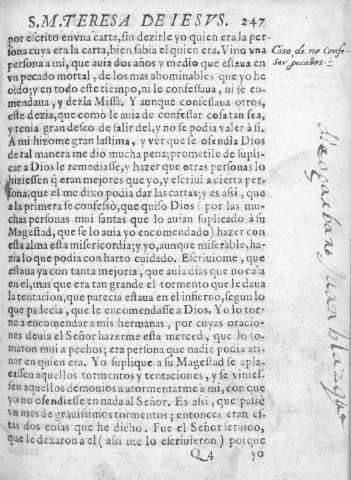 S. M. TERESA DE IESVS. 247
por escrito en vna carta, sin dezirle yo quien era la per-
sona cuya era la carta, bien sabia el quien era. Vino vna
persona a mi, que auia dos años y medio que estaua en
vn pecado mortal, de los mas abominables que yo he
oldo; y en todo este tiempo, ni le confessaua, ni se en-
mendaua, y dezia Missa. Y aunque confessaua otros,
este dezia, que como se auia de confessar cosa tan fea,
y tenia gran desco de salir del, y no se podia valer à si.
A mi hizome gran lastima, y ver que se ofendia Dios
de tal manera me diò mucha pena; prometile de supli-
car a Dios le remediasse, y hazer que otras personas lo
hiziessen q̃ eran mejores que yo, y escriui a cierta per-
sona, que el me dixo podia dar las cartas; y es assi, que
a la primera se confessò, que quiso Dios (por las mu-
chas personas mui santas que lo auian suplicado à su
Magestad, que se lo auia yo encomendado) hazer con
esta alma esta misericordia; y yo, aunque miserable, ha-
zia lo que podia con harto cuidado. Escriuiome, que
estaua ya con tanta mejoria, que auia dias que no caìa
en el, mas que era tan grande el tormento que le daua
la tentacion, que parecia estaua en el infierno, segun lo
que padecia, que le encomendasse a Dios. Yo lo tor-
nè a encomendar a mis hermanas, por cuyas oracio-
nes deuia el Señor hazerme esta merced, que lo to-
maron mui a pechos; era persona que nadie podia ati-
nar en quien era. Yo suplique a su Magestad se apla-
cassen aquellos tormentos y tentaciones, y se vinies-
sen aquellos demonios a atormentarme a mi, con que
yo no ofendiesse en nada al Señor. Es assi, que passè
vn mes de grauissimos tormentos; entonces eran es-
tas dos cosas que he dicho. Fue el Señor seruido,
que le dexaron a el (assi me lo escriuieron) porque
Q 4 yo
Caso, de no Confe-
sar pecados.